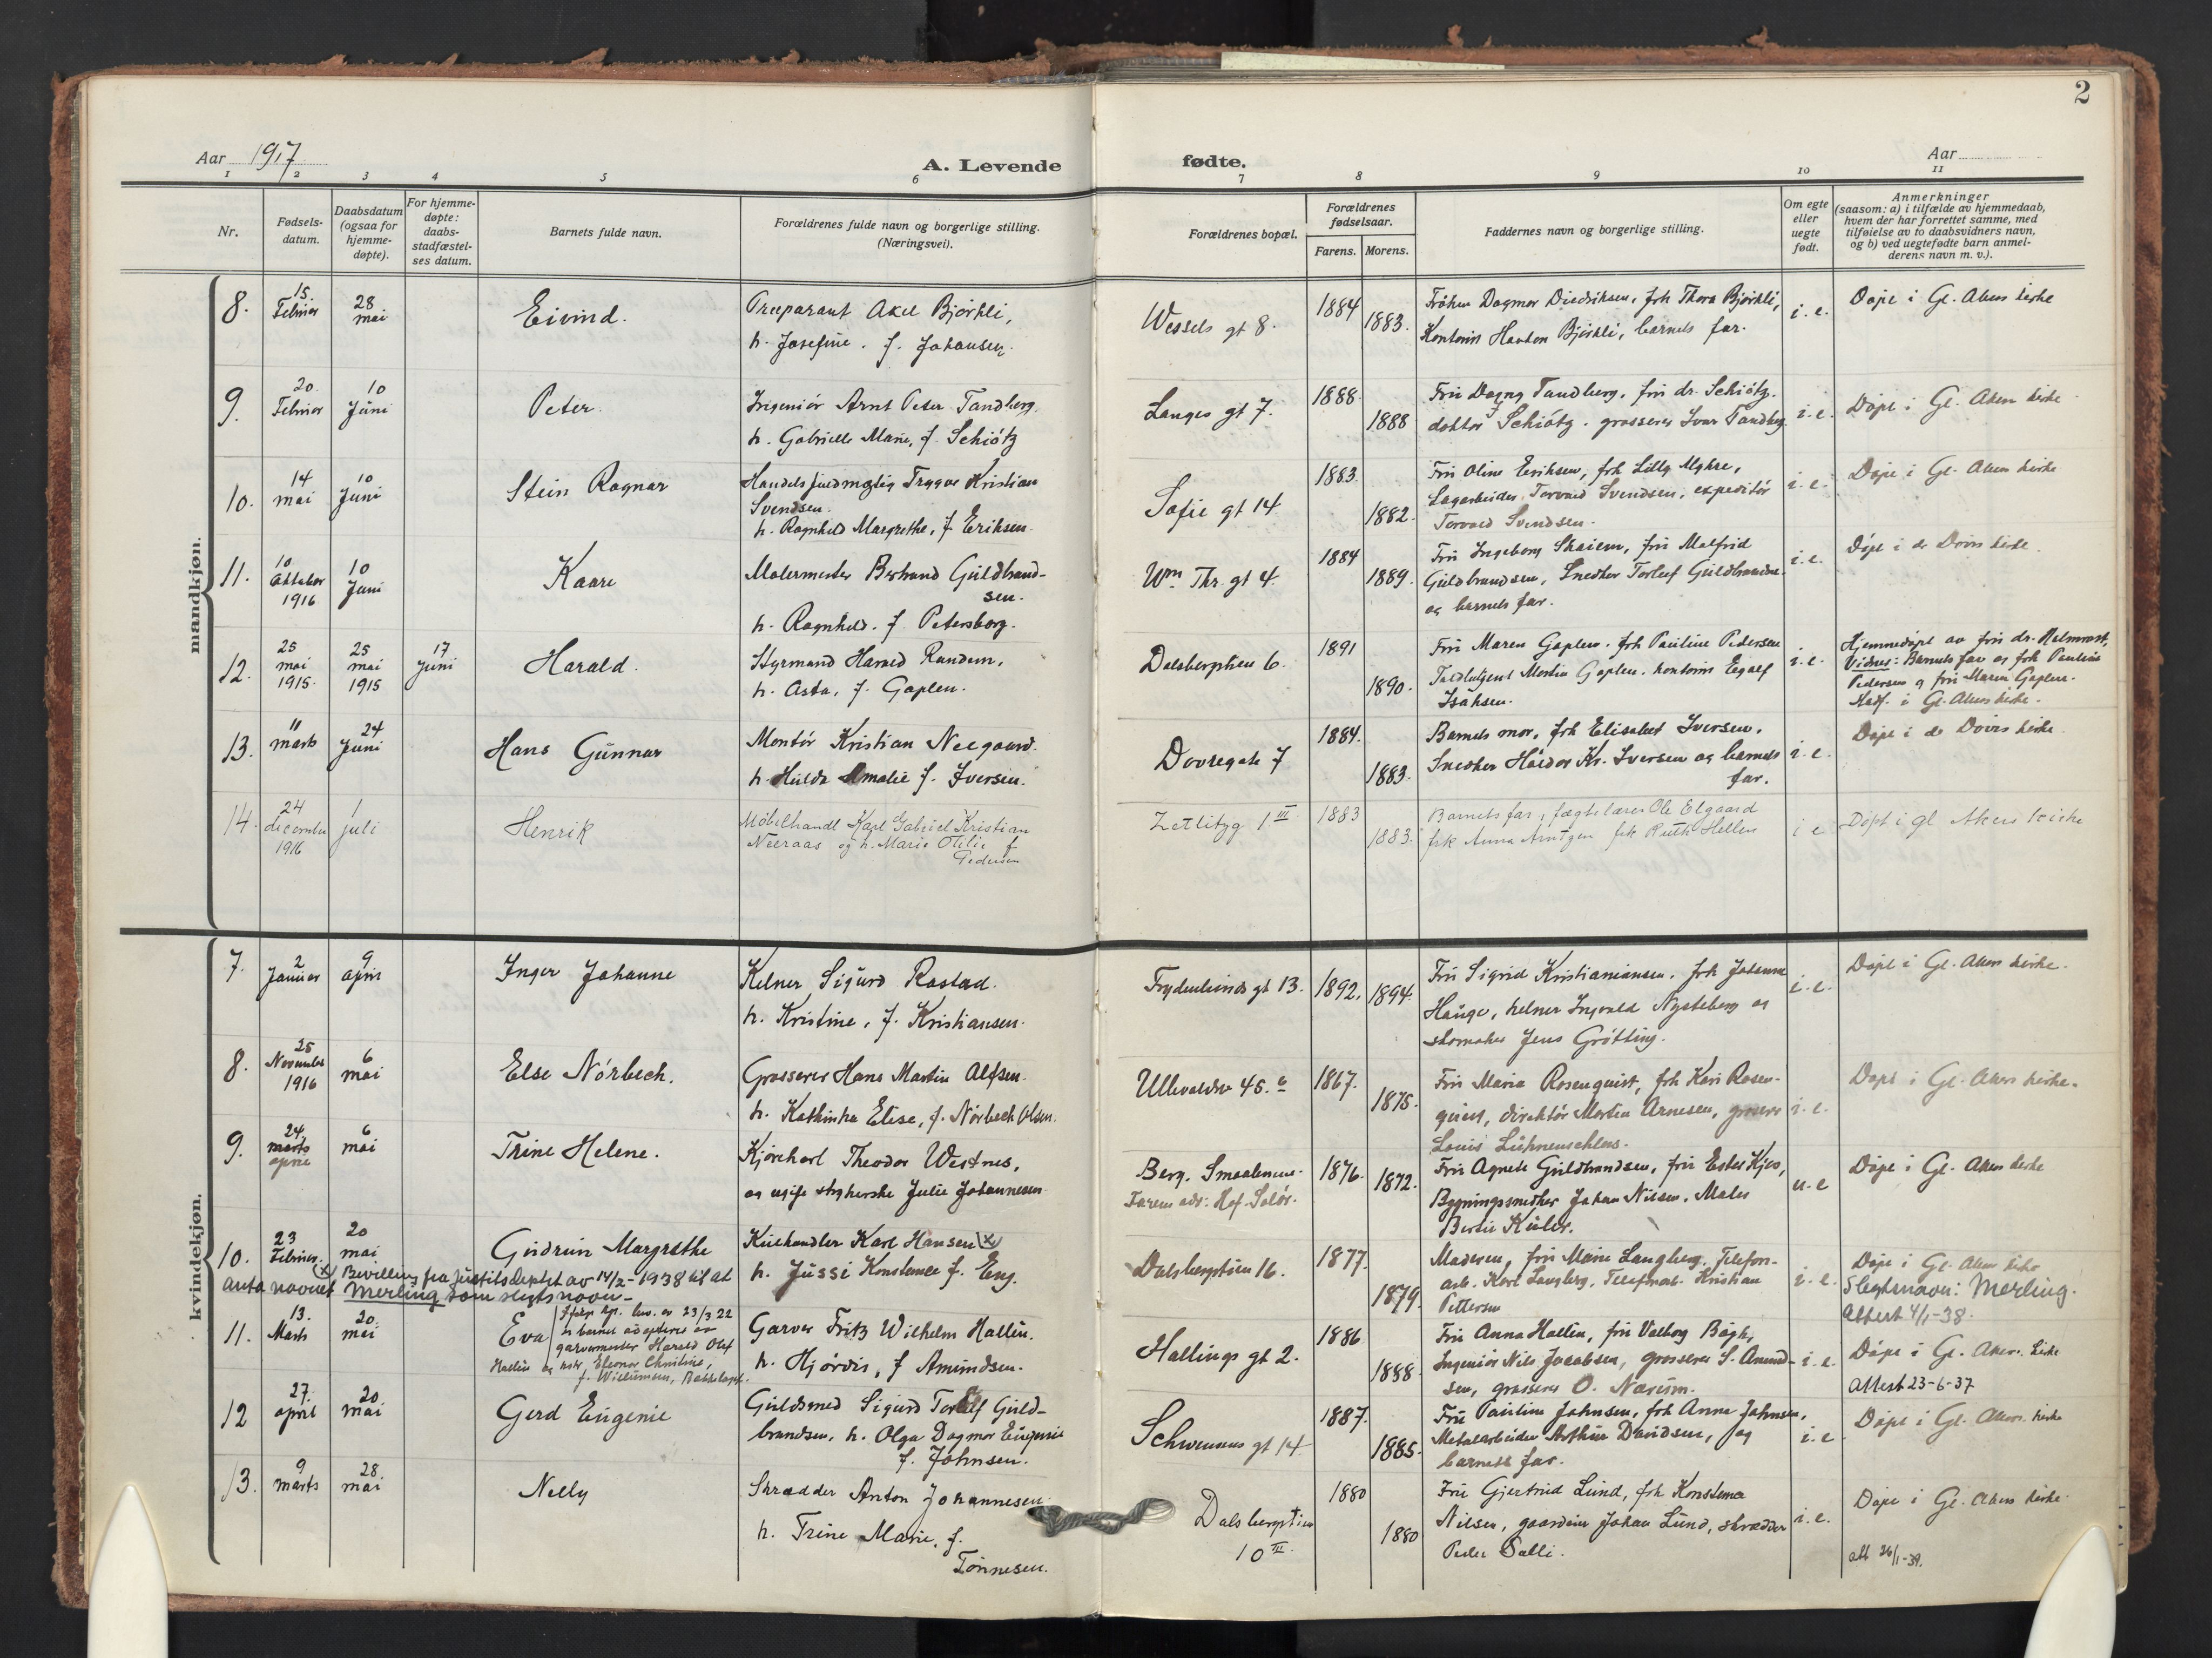 2
Aar 1917
A. Levende
fødte.
Aar
1 2 3 4 5 6 7 8 9 10 11
Nr.
Fødsels-
datum.
Daabsdatum
(ogsaa for
hjemme-
døpte).
For hjemme-
døpte:
daabs-
stadfæstel-
ses datum.
Barnets fulde navn.
Forældrenes fulde navn og borgerlige stilling.
(Næringsvei).
Forældrenes bopæl.
Forældrenes
fødselsaar.
Farens. Morens.
Faddernes navn og borgerlige stilling.
Om egte
eller
uegte
født.
Anmerkninger
(saasom: a) i tilfælde av hjemmedaab,
hvem der har forrettet samme, med
tilføielse av to daabsvidners navn,
og b) ved uegtefødte barn anmel-
derens navn m. v.).
mandkjøn.
8.
15.
Februar
28
mai
Eivind.
Præparant Axel Bjørkli,
h. Josefine. f. Johansen.
Wessels gt 8.
1884
1883.
Frøken Dagmar Diedriksen, frk Thora Bjørkli,
Kontorist Haakon Bjørkli, barnets far.
i. e.
Døpt i Gl. Akers kirke
9.
20.
Februar
10
Juni
Peter.
Ingeniør Arnt Peter Tandberg.
h. Gabrielle Marie, f. Schiøtz
Langes gt 7.
1888.
1888
Fru Dagny Tandberg, fru dr. Schiøtz.
doktor Schiøtz. grosserer Ivar Tandberg.
i. e.
Døpt i Gl. Akers kirke
10.
14
mai
10
Juni
Stein Ragnar
Handelsfuldmægtig Trygve Kristian
Svendsen.
h. Ragnhild Margrethe, f Eriksen
Sofie gt 14
1883.
1882.
Fru Oline Eriksen, frk Lilly Myhre,
Lagarbeider Torvald Svendsen, expeditør
Torvald Svendsen.
i. e.
Døpt i Gl. Akers kirke
11.
10
Oktober
1916
10
Juni
Kaare
Malermester Berhard Guldbrand-
sen.
h. Ragnhild. f Petersborg.
Wm Thr. gt 4.
1884
1889.
Fru Ingeborg Skaiem, fru Malfrid
Guldbrandsen, Snedker Torleif Guldbrandsen
og barnets far.
i. e.
Døpt i de Døves kirke
12.
25
mai
1915.
25
mai
1915
17
Juni
Harald.
Styrmand Harald Randem,
h. Asta, f. Gaplen.
Dalsbergstien 6.
1891
1890.
Fru Maren Gaplen. frk Pauline Pedersen
Martin Gaplen. kontorist
Isaksen.
i. e.
Hjemmedøpt av fru dr.
Vidner: Barnets far og frk Pauline
Pedersen og fru Maren Gaplen.
Stadf. i Gl. Akers kirke.
13.
11
marts
24
Juni
Hans Gunnar
Montør Kristian Neegaard.
h. Hulda Amalie f. Iversen.
Dovregate 7
1884.
1883.
Barnets mor, frk Elisabet Iversen.
Snedker Haldor Kr. Iversen og barnets
far.
i. e.
Døpt i de Døves kirke
14.
24
december
1916
1
juli
Henrik
Møbelhandl Karl Gabriel Kristian
Neeraas og h. Marie Otilie f
Pedersen
Zetlitzg 1 III
1883
1883.
Barnets far, fægtelærer Ole Elgaard
frk Anna Arntzen frk Ruth Hellen
i e
Døpt i gl Akers kirke
kvindekjøn.
7.
2
Januar
9
april
Inger Johanne
Kelner Sigurd Rastad.
h. Kristine, f. Kristiansen.
Frydenlunds gt 13.
1892.
1894.
Fru Sigrid Kristianiansen. frk Johanne
Hauge, kelner Ingvald Nysteberg og
skomaker Jens Grøtting.
i. e.
Døpt i Gl. Akers kirke.
8.
25
November
1916
6
mai
Else Nórbech.
Grosserer Hans Martin Alfsen.
h. Kathinka Elise, f. Nørbech Olsen.
Ullevaldsv 45. c
1867.
1875.
Fru Maria Rosenquist, frk Kari Rosen-
quist, direktør Martin Arnesen, grosserer
Louis
i. e.
Døpt i Gl. Akers kirke.
9.
24.
marts
april
6
mai
Trine Helene.
Kjørekarl Theodor Westnes,
og ugift strykerske Julie Johannesen
Berg. Smaalenene.
Farens adr: Hof. Solør.
1876.
1872.
Fru Agnete Guldbrandsen, fru Ester Kjos,
Bygningssnedker Johan Nilsen. Maler
Bertil Küler.
u. e
Døpt i Gl. Akers kirke
10.
23
Februar.
20
mai
Gudrun Margrethe
Kulhandler Karl Hansen (x)
h. Jussi Konstance f. Eng.
(x) Bevilling fra Justitsdeptet av 14/2-1938 til at
anta navnet Merling som slegtsnavn-
Dalsbergstien 16.
1877.
1879.
Moderen, fru Marie Langberg. Telefon-
arb. Karl Langberg, Telefonarb. Kristian
Pettersen
i. e.
Døpt i Gl. Akers kirke
Slegtsnavn: Merling.
Attest 4/1-38.
11.
13.
Marts
20.
mai
Eva
Ifølge kgl. bev. av 23/3 22
er barnet adopteret av
garvermester Harald Olaf
Hallin og hstr, Eleonor Christine,
f. Willumsen, Bakkelaget.
Garver Fritz Wilhelm Hallin.
h. Hjørdis, f Amundsen.
Hallings gt 2.
1886
1888.
Fru Anna Hallin, fru Valborg Bøgh,
Ingeniør Nils Jacobsen, grosserer S. Amund-
sen, grosserer O. Narum.
i. e.
Døpt i Gl. Akers. kirke
Attest 23-6-37
12
27.
april
20.
mai
Gerd Eugenie
Guldsmed Sigurd Toralf Guld-
brandsen, h. Olga Dagmar Eugenie
f. Johnsen.
Schwensens gt 14.
1887.
1885.
Fru Pauline Johnsen, frk Anna Johnsen,
Metalarbeider Arthur Davidsen, og
barnets far.
i. e.
Døpt i Gl. Akers. kirke
13.
9
marts
28.
mai
Nelly
Skrædder Anton Johannesen.
h. Trine Marie, f.
Tønnesen.
Dalsbergstien
10 III.
1880
1880
Fru Gjertrud Lund, frk Konstance
Nilsen, gaardeier Johan Lund, skrædder
Peder Salli.
i. e.
Døpt i Gl. Akers kirke.
att 26/1-39.